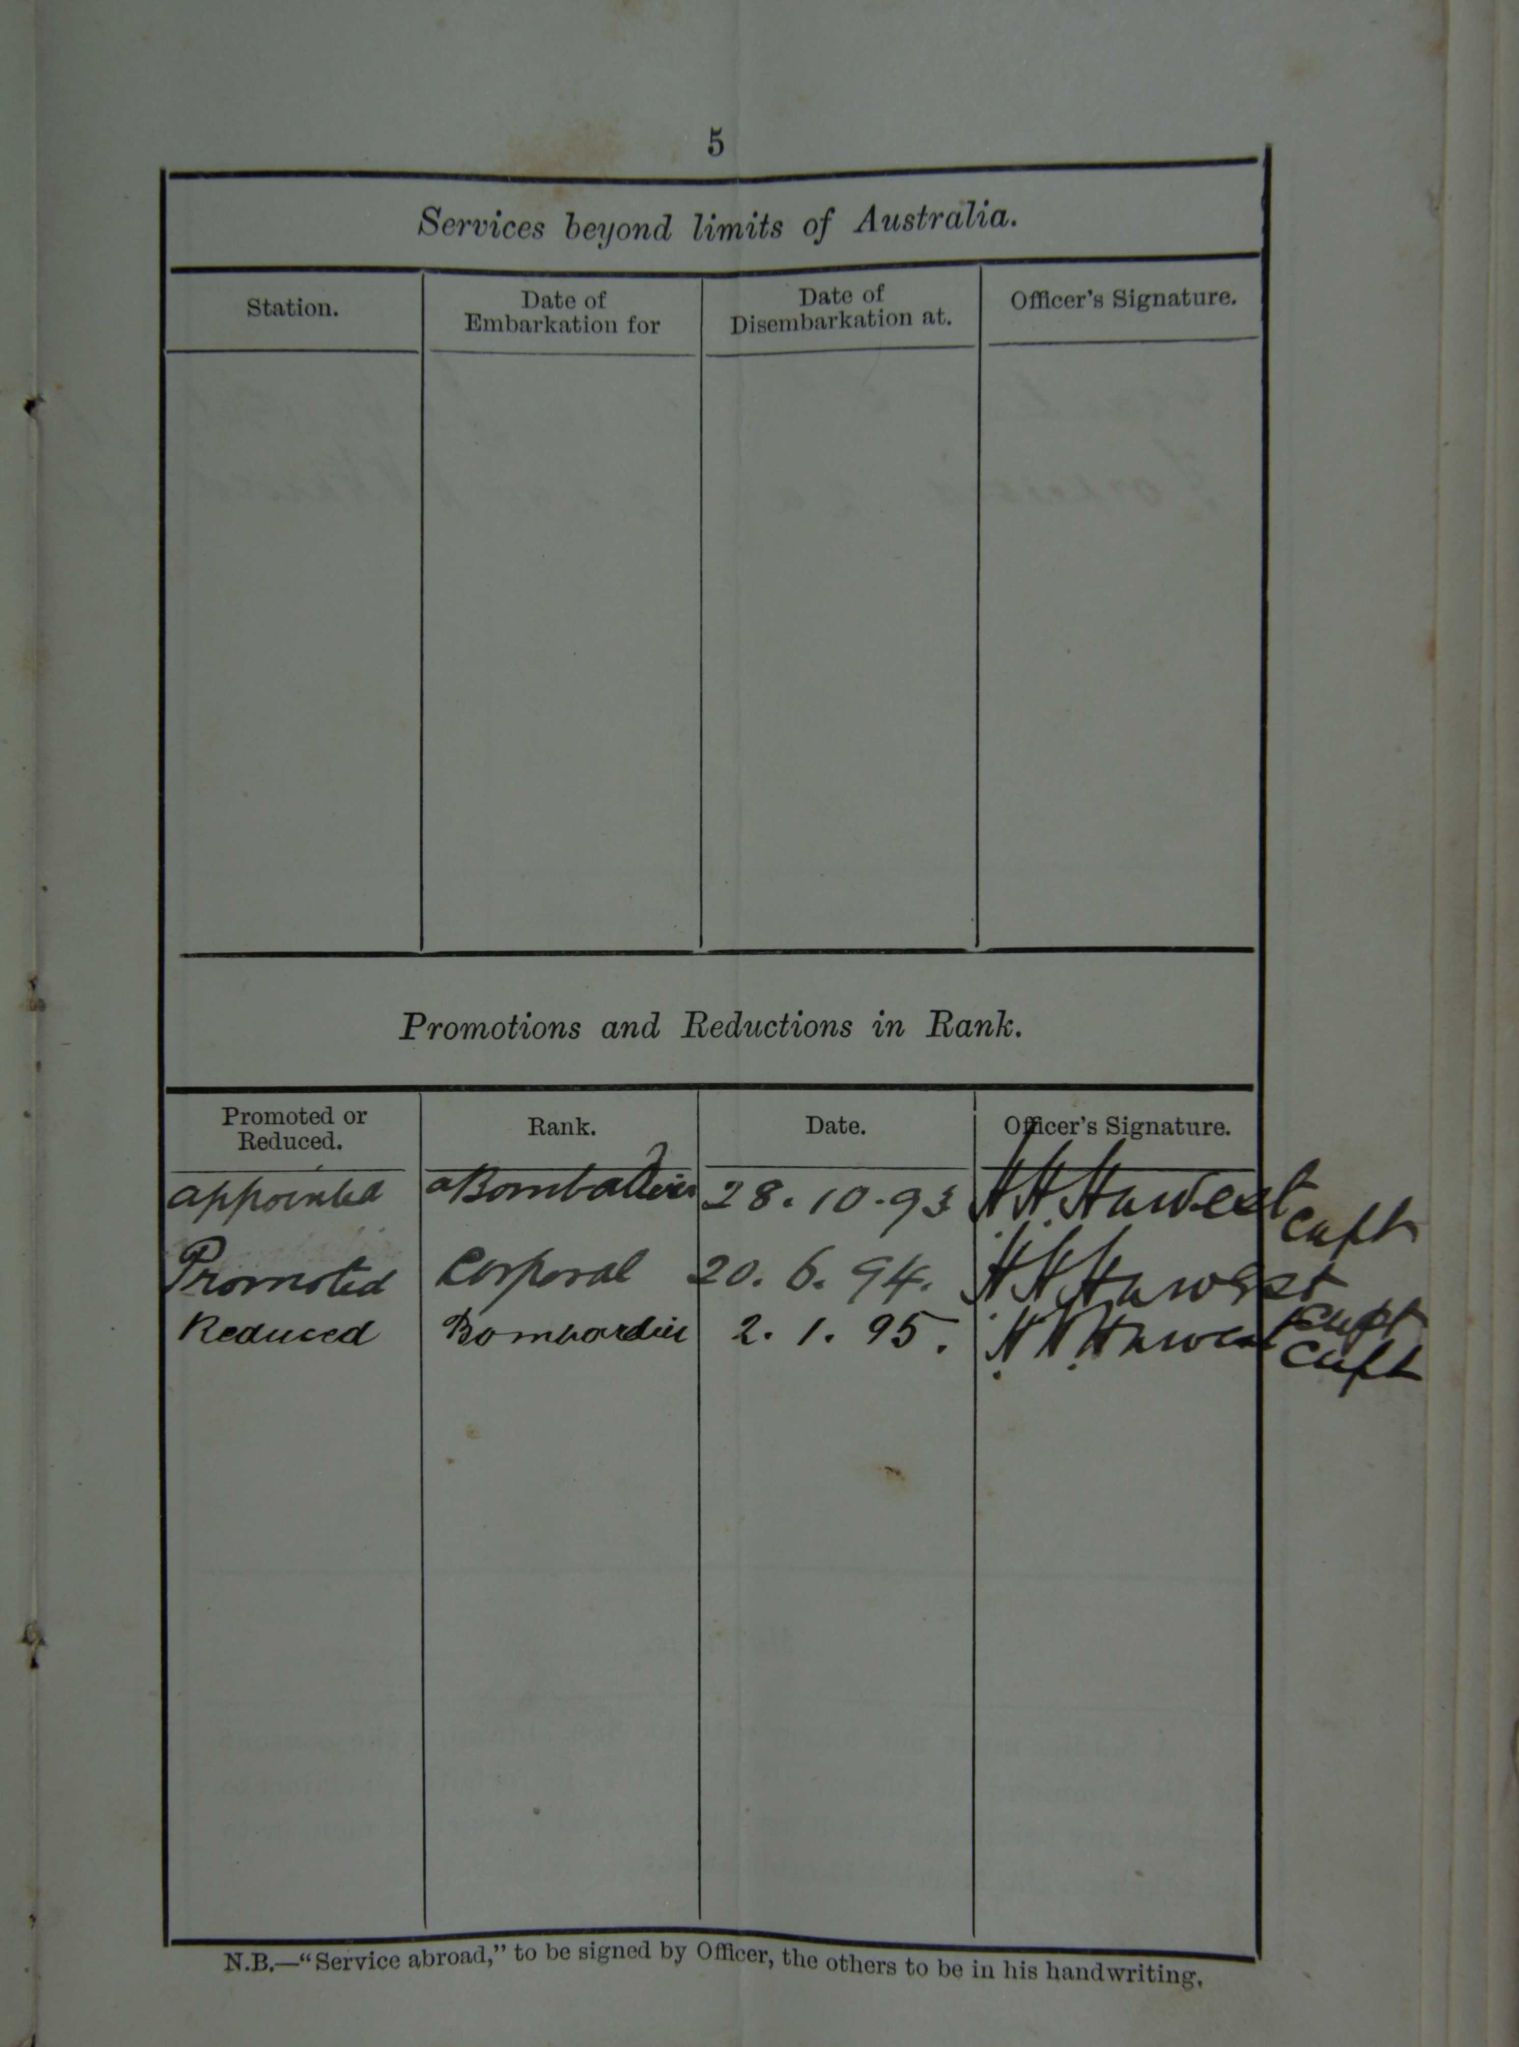 5
Services beyond limits of Australia.
Station. Date of Embarkation for Date of Disembarkation at. Officer's Signature.
Promotions and Reductions in Rank.
Promoted or Reduced. Rank. Date. Officer's Signature.
appointed a Bombadier 28.10.93 H.H. Hawest Capt
Promoted Corporal 20.6.94. H H Hawest Capt
Reduced Bombardier 2.1.95. H H Hawest Capt
N.B.—"Service abroad," to be signed by Officer, the others to be in his handwriting.